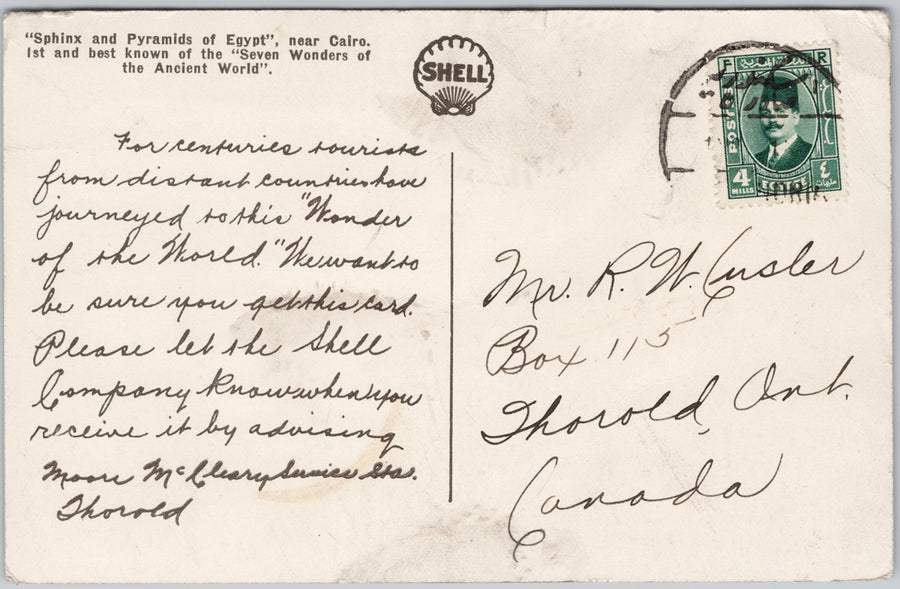 "Sphinx and Pyramids of Egypt", near Cairo.
1st and best known of the "Seven Wonders of
the Ancient World".
SHELL
For centuries tourists
from distant countries have
journeyed to this "Wonder
of the World." We want to
be sure you get this card.
Please let the Shell
Company know when you
receive it by advising
Moore McCleary Service Sta.
Thorold
F R
POSTAGE
4
MILLS
٤
مليمات
Mr. R. W. Cusler
Box 115
Thorold, Ont.
Canada